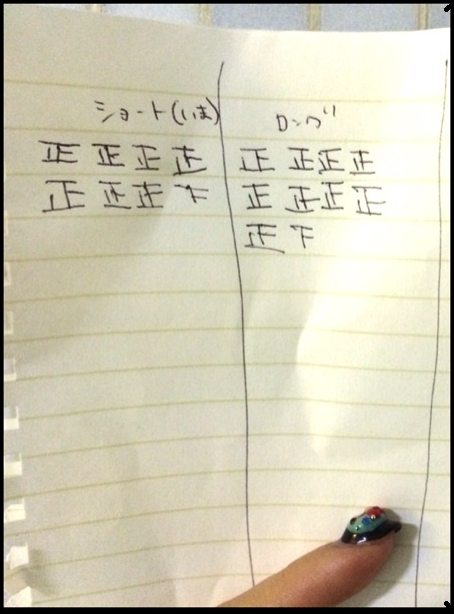 ショート(いま) ロング
正 正 正 正 正 正 正 正
正 正 正 下 正 正 正 正
正 下